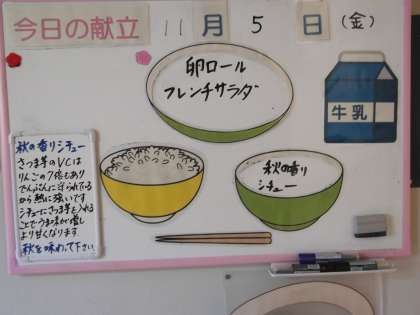 今日の献立 11月5日(金)
卵ロール
フレンチサラダ
牛乳
秋の香り
シチュー
秋の香りシチュー
さつま芋のVCは
りんごの7倍もあり
でんぷんに守られている
から熱に強いです
シチューにさつま芋を入れる
ことでうま味が増し
より甘くなります
秋を味わって下さい